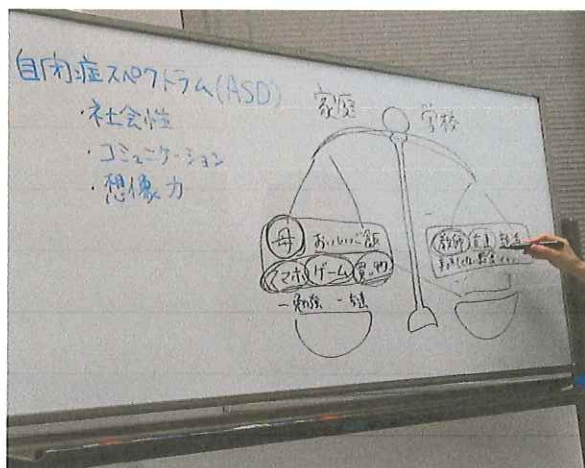 自閉症スペクトラム(ASD)
・社会性
・コミュニケーション
・想像力
家庭
学校
母 おいしいご飯
スマホ ゲーム 買い物
-勉強
教師